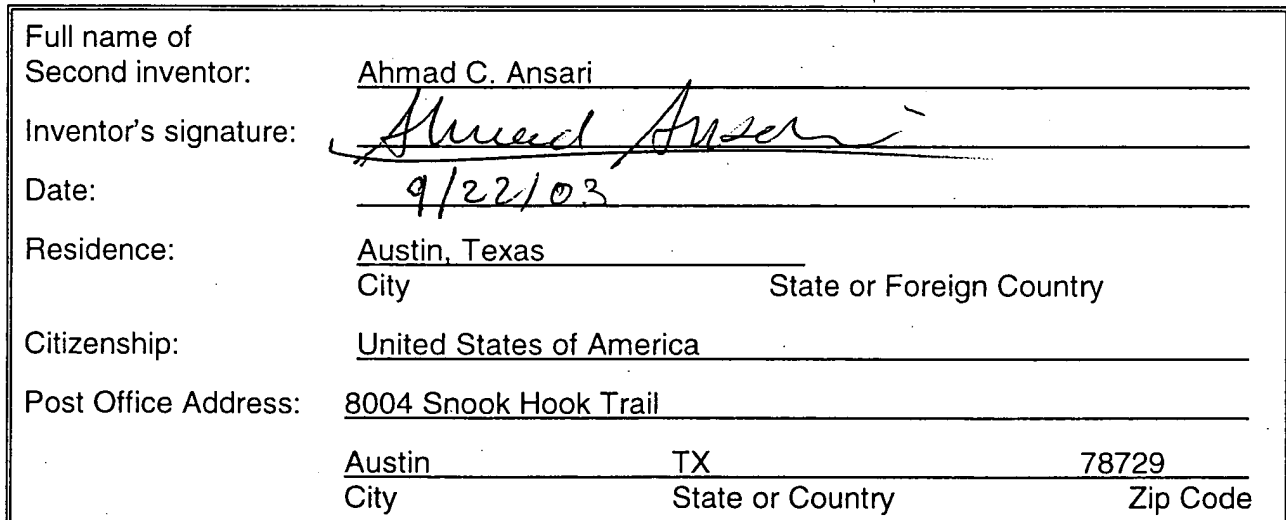 Full name of
Second inventor: Ahmad C. Ansari
Inventor's signature: Ahmad Ansari
Date: 9/22/03
Residence: Austin, Texas
City State or Foreign Country
Citizenship: United States of America
Post Office Address: 8004 Snook Hook Trail
Austin TX 78729
City State or Country Zip Code